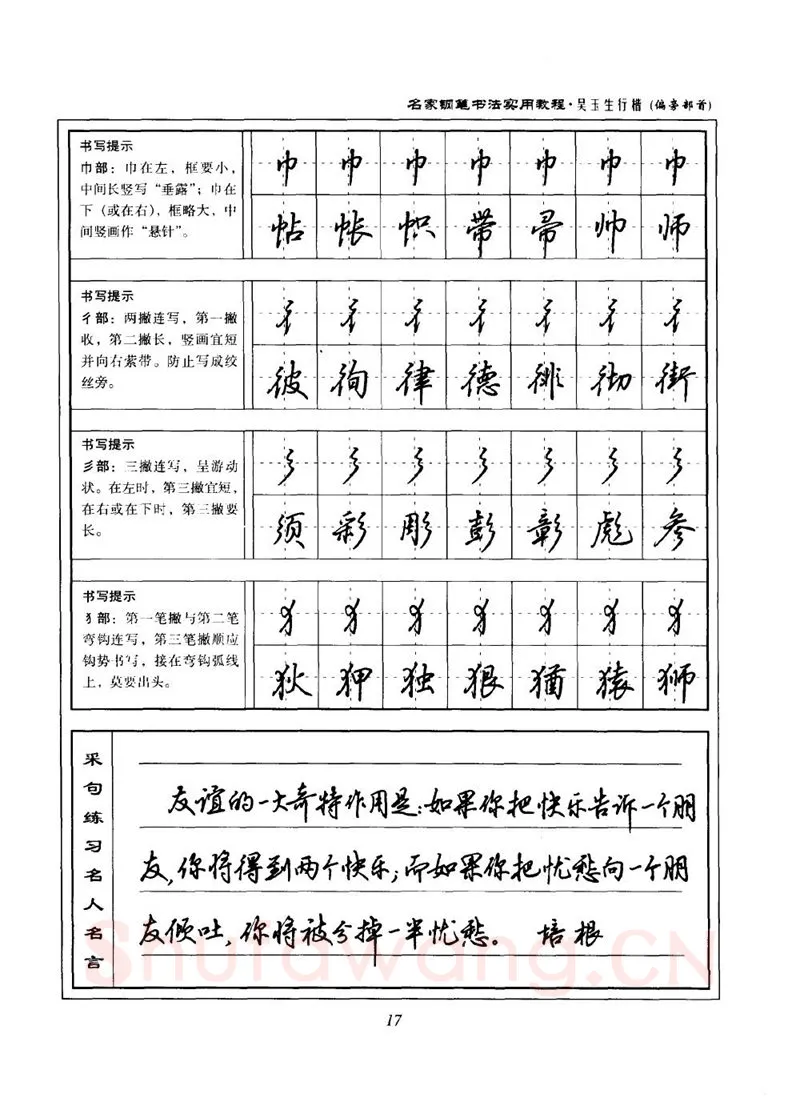 名家钢笔书法实用教程·吴玉生行楷（偏旁部首）
书写提示
巾部：巾在左，框要小，
中间长竖写“垂露”；巾在
下（或在右），框略大，中
间竖画作“悬针”。
巾 巾 巾 巾 巾 巾 巾
帖 帐 帜 带 帚 帅 师
书写提示
彳部：两撇连写，第一撇
收，第二撇长，竖画宜短
并向右紫带。防止写成绞
丝旁。
彳 彳 彳 彳 彳 彳 彳
彼 徇 律 德 徘 彻 街
书写提示
彡部：三撇连写，呈游动
状。在左时，第三撇宜短，
在右或在下时，第三撇要
长。
彡 彡 彡 彡 彡 彡 彡
须 彩 彤 彭 彰 彪 参
书写提示
犭部：第一笔撇与第二笔
弯钩连写，第三笔撇顺应
钩势书写，接在弯钩弧线
上，莫要出头。
犭 犭 犭 犭 犭 犭 犭
狄 狎 独 狠 猶 猿 狮
采句练习名人名言
友谊的一大奇特作用是：如果你把快乐告诉一个朋
友，你将得到两个快乐；而如果你把忧愁向一个朋
友倾吐，你将被分掉一半忧愁。 培根
Shufawang.CN
17